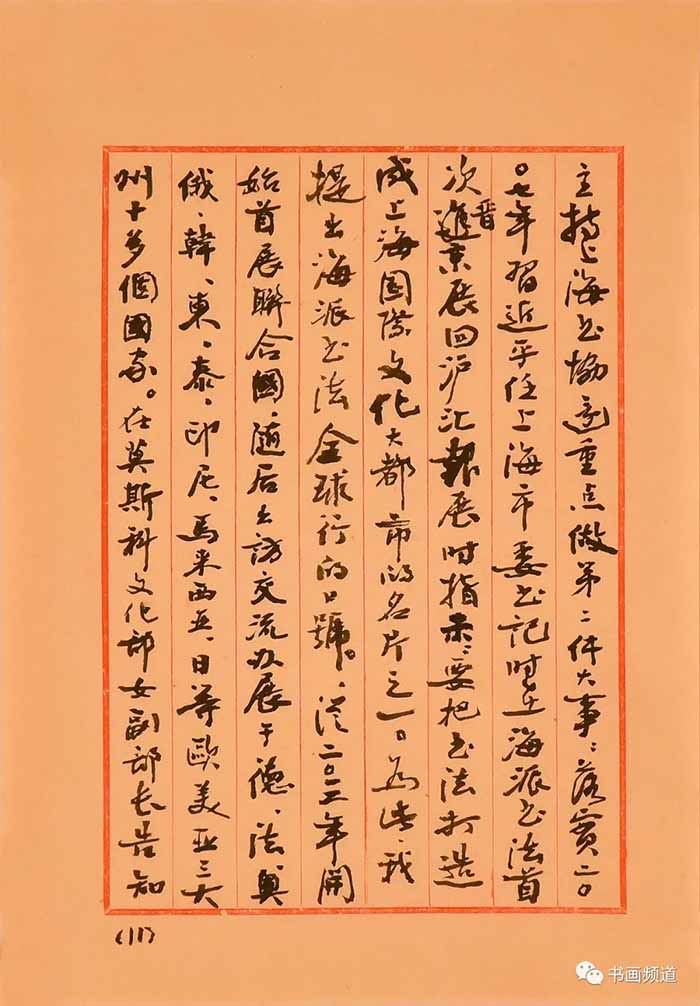 主持上海书协適重点做第二件大事：落實二〇
〇七年習近平任上海市委书记时在海派书法首
次晋進京展回沪汇報展时指示：要把书法打造
成上海国際文化大都市的名片之一。为此，我
提出海派书法全球行的口號。從二〇一二年開
始首展聯合國，随后出訪交流办展于德、法、奥、
俄、韓、柬、泰、印尼、馬来西亚、日等歐美亚三大
州十多個國家。在莫斯科文化部女副部长告知
(11)
书画频道